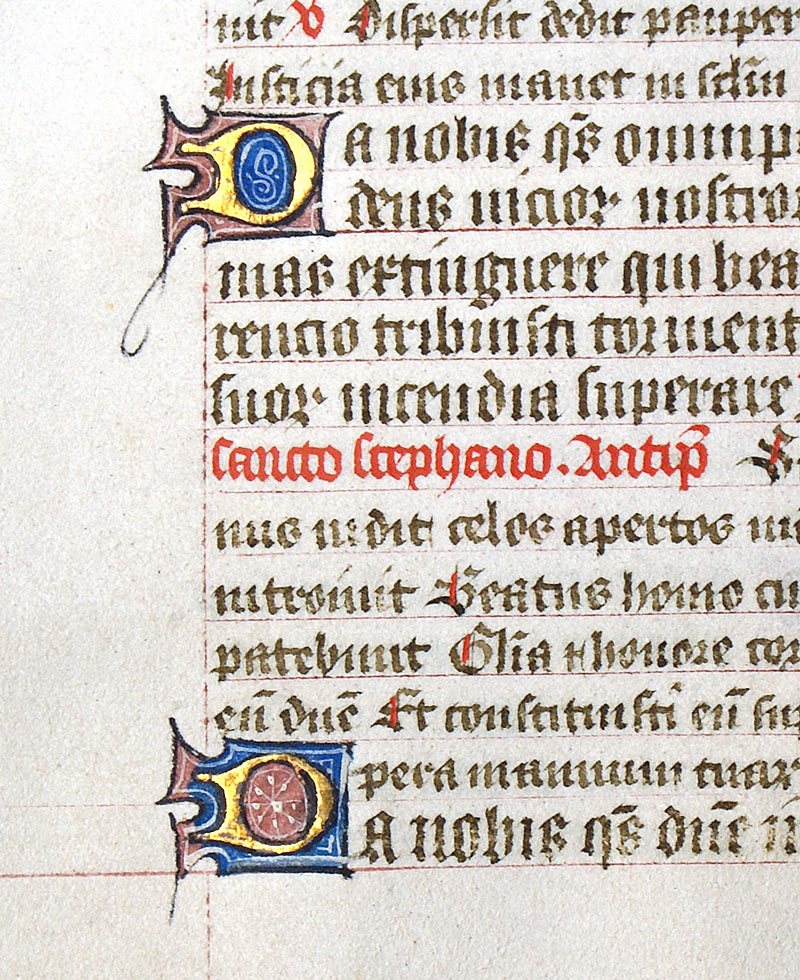 uit V Dispersit dedit pauper
Iusticia eius manet in sclm
Da nobis qs omnip
deus uicior nostror
mas extinguere qui bea
rencio tribuisti torment
suor incendia superare
sancto stephano. Antiph
nus uidit celos apertos ui
introiuit Beatus homo cu
patebant Glia & honore cor
eu dne Et constituisti eu sup
opera manuum tuar
Da nobis qs dne